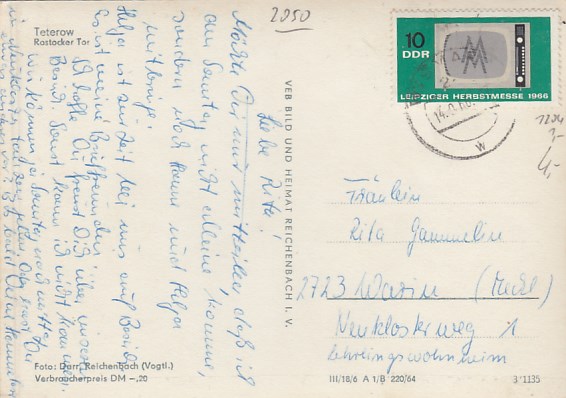 2050
Teterow
Rostocker Tor
10
DDR
LEIPZIGER HERBSTMESSE 1966
W
1204
3,-
4,-
Liebe Rita!
Möchte Dir nur mitteilen, daß ich
am Sonntag nicht alleine komme,
sondern noch Hanne und Helga
mitbringe.
Helga ist zur Zeit bei mir auf Besuch.
Es ist meine Brieffreundin.
Ich hoffe, Du freust Dich über unseren
Besuch. Sonst kann ich nicht kommen.
Wir können ja Sonntag nach
VEB BILD UND HEIMAT REICHENBACH I. V.
Fräulein
Rita Gammelin
2723 Warin (Meckl)
Neukloster weg 1
Lehrlingswohnheim
Foto: Darr, Reichenbach (Vogtl.)
Verbraucherpreis DM -,20
III/18/6 A 1/B 220/64
3 1135